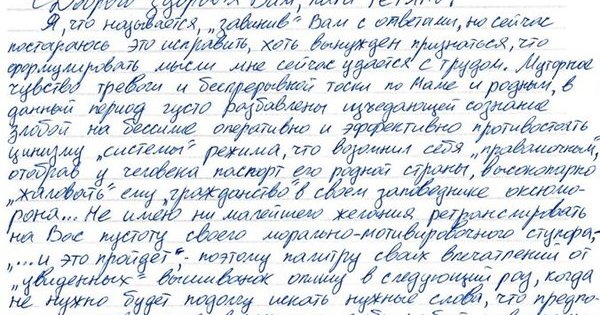 Доброго здоровья Вам,
Я, что называется, „завинив" Вам с ответами, но сейчас
постараюсь это исправить, хоть вынужден признаться, что
формулировать мысли мне сейчас удается с трудом. Муторное
чувство тревоги и беспрерывной тоски по Маме и родным, в
данный период густо разбавлены изъедающей сознание
злобой на бессилие оперативно и эффективно противостоять
цинизму „системы" режима, что возомнил себя „правомочным",
отобрав у человека паспорт его родной страны, высокопарно
„жаловать" ему „гражданство" в своем заповеднике оксюмо-
рона... Не имею ни малейшего желания, ретранслировать
на Вас пустоту своего морально-мотивировочного ступора,
„...и это пройдет", - поэтому палитру своих впечатлений от
„увиденных" вышиванок опишу в следующий раз, когда
не нужно будет подолгу искать нужные слова, что предпо-